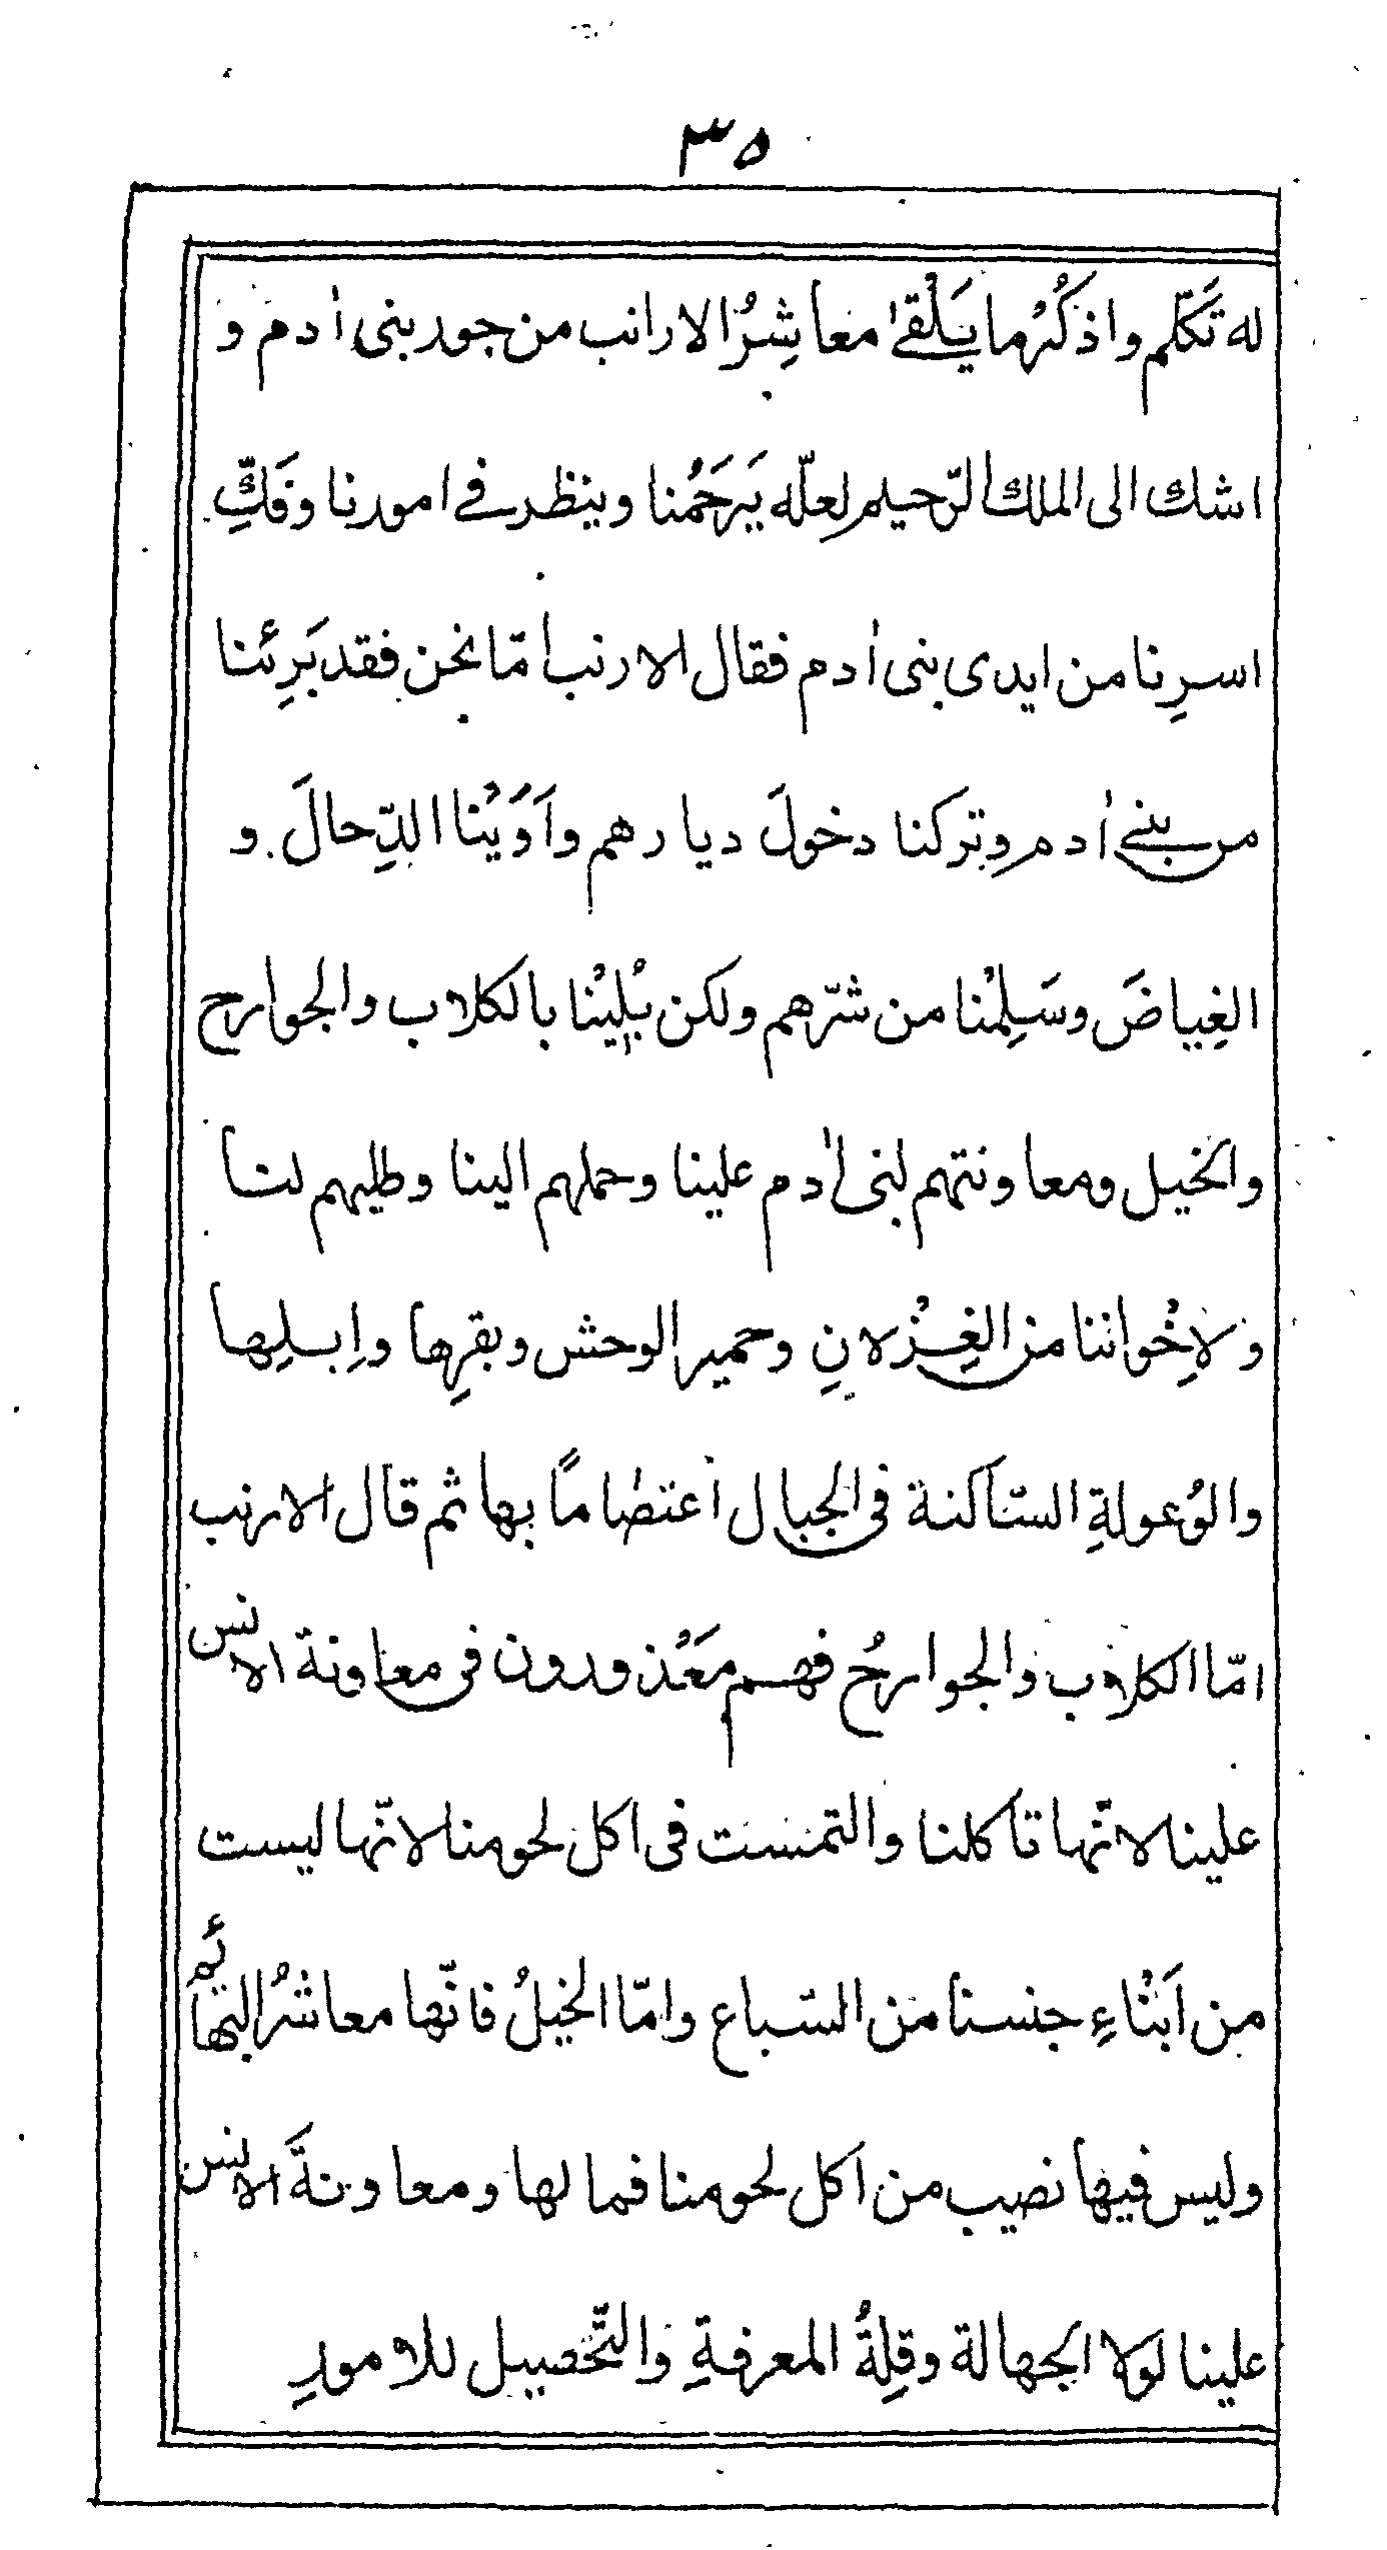 ٣٥
له تَكَلّم واذكُرْ ما يَلْقىٰ معاشِرُ الارانب من جور بنى اٰدم و
اشك الى الملك الرّحيم لعلّه يَرحَمُنا وينظر فے امورنا وفَكِّ
اسرِنا من ايدى بنى اٰدم فقال الارنب امّا نحن فقد بَرِئنا
من بنے اٰدم وتركنا دخولَ ديارهم واَوَيْنا الدِّحالَ و
الغِياضَ وسَلِمْنا من شرّهم ولكن بُلِيْنا بالكلاب والجوارح
والخيل ومعاونتهم لبنى اٰدم علينا وحملهم الينا وطلبهم لنا
ولاِخْواننا من الغِزْلانِ وحمير الوحش وبقرِها واِبلِها
والوُعولةِ السّاكنة فى الجبال اعتصاماً بها ثم قال الارنب
امّا الكلاب والجوارحُ فهم مَعْذورون فى معاونة الانس
علينا لانّها تأكلنا والتمست فى اكل لحومنا لانّها ليست
من اَبْناءِ جنسنا من السّباع وامّا الخيلُ فانّها معاشرُ البهائم
وليس فيها نصيب من اكل لحومنا فما لها ومعاونةَ الانس
علينا لولا الجهالة وقِلةُ المعرفةِ والتّحصيل للامورِ